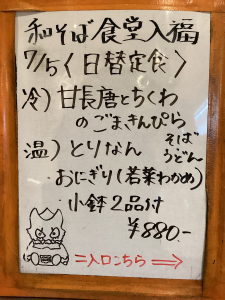 和そば食堂入福
7/5〈日替定食〉
冷)甘長唐とちくわ
のごまきんぴら
温)とりなん
そば
うどん
・おにぎり(若菜わかめ)
・小鉢2品付
¥880.-
=入口こちら⇒